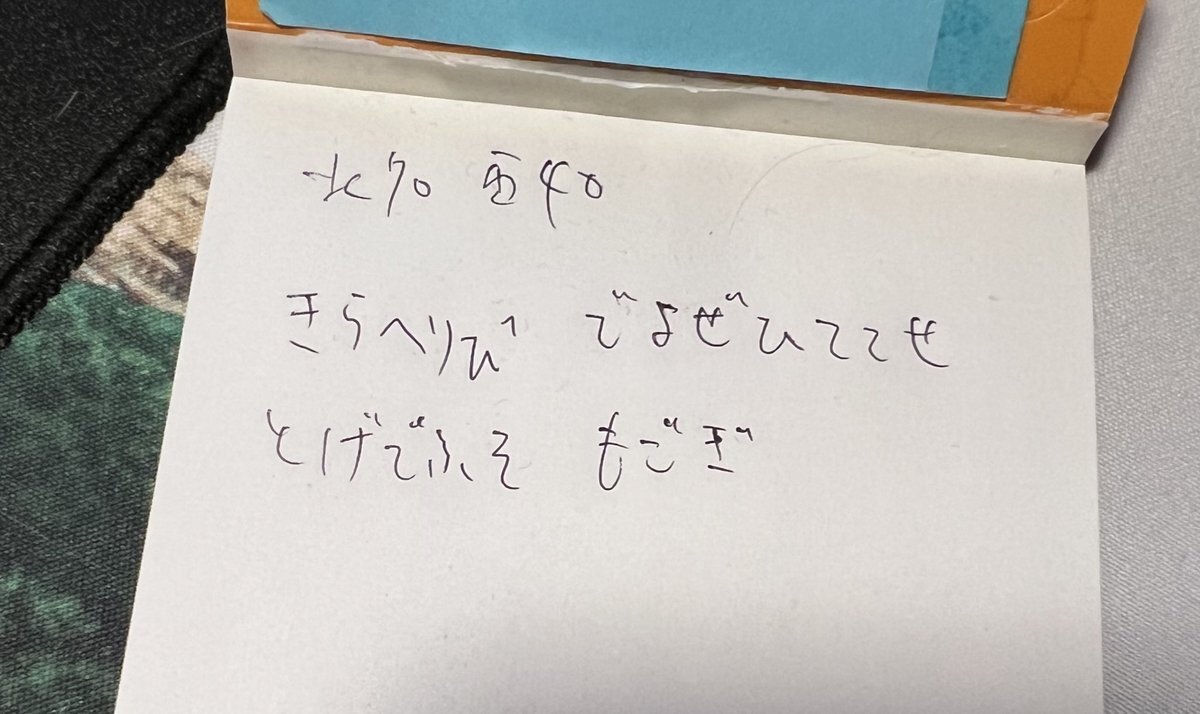 北70 西40
きらへりび でよぜひててせ
とげでふそ もごぎ